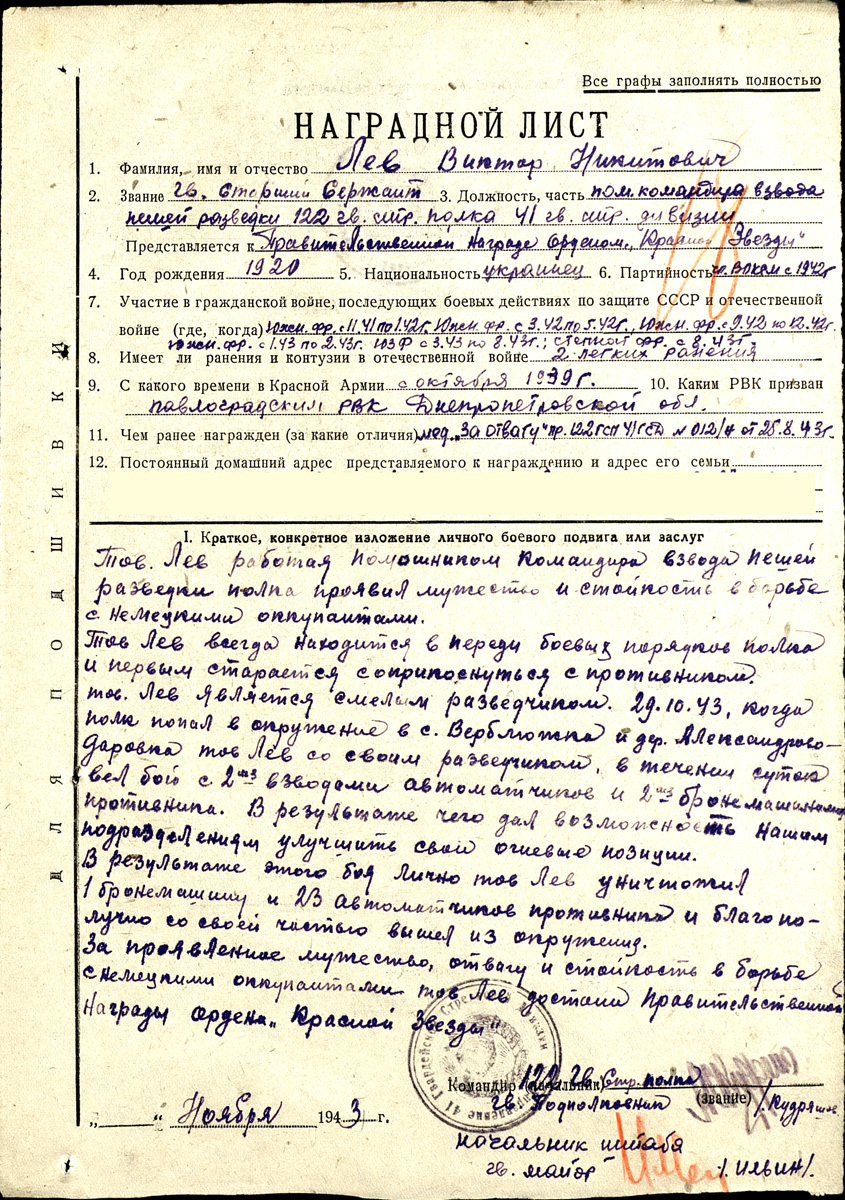 Все графы заполнять полностью
НАГРАДНОЙ ЛИСТ
1. Фамилия, имя и отчество Лев Виктор Никитович
2. Звание гв. Старший Сержант 3. Должность, часть пом. командира взвода
пешей разведки 122 гв. стр. полка 41 гв. стр. дивизии
Представляется к Правительственной Награде Орденом „Красной Звезды"
4. Год рождения 1920 5. Национальность украинец 6. Партийность чл. ВЛКСМ с 1942г
7. Участие в гражданской войне, последующих боевых действиях по защите СССР и отечественной
войне (где, когда) Южн. фр. с 11.41 по 1.42г. Южн. фр. с 3.42 по 5.42г., Южн. фр. с 9.42 по 12.42г.
Южн. фр. с 1.43 по 2.43г. ЮЗФ с 3.43 по 8.43г.; Степной фр. с 8.43г.
8. Имеет ли ранения и контузии в отечественной войне 2 легких ранения
9. С какого времени в Красной Армии с октября 1939г. 10. Каким РВК призван
Павлоградским РВК Днепропетровской обл.
11. Чем ранее награжден (за какие отличия) мед. „За отвагу" пр. 122 гсп 41 гсд № 012/н от 25.8.43г.
12. Постоянный домашний адрес представляемого к награждению и адрес его семьи
I. Краткое, конкретное изложение личного боевого подвига или заслуг
Тов. Лев работая Помошником командира взвода пешей
разведки полка проявил мужество и стойкость в борьбе
с немецкими оккупантами.
Тов Лев всегда находится в переди боевых порядков полка
и первым старается соприкоснуться с противником.
тов. Лев является смелым разведчиком. 29.10.43, когда
полк попал в окружение в с. Верблюжка и дер. Александрово-
Даровка тов Лев со своим разведчиком, в течении суток
вел бой с 2мя взводами автоматчиков и 2мя бронемашинами
противника. В результате чего дал возможность нашим
подразделениям улучшить свои огневые позиции.
В результате этого боя лично тов Лев уничтожил
1 бронемашину и 23 автоматчиков противника и благопо-
лучно со своей частью вышел из окружения.
За проявленное мужество, отвагу и стойкость в борьбе
с немецкими оккупантами тов Лев достоин Правительственной
Награды Ордена „Красной Звезды"
Командир (начальник) 122 гв. Стр. полка
гв. Подполковник (звание) /. Кудряшов
„ " Ноября 1943 г.
начальник штаба
гв. майор /. Ильин/.
ДЛЯ ПОДШИВКИ